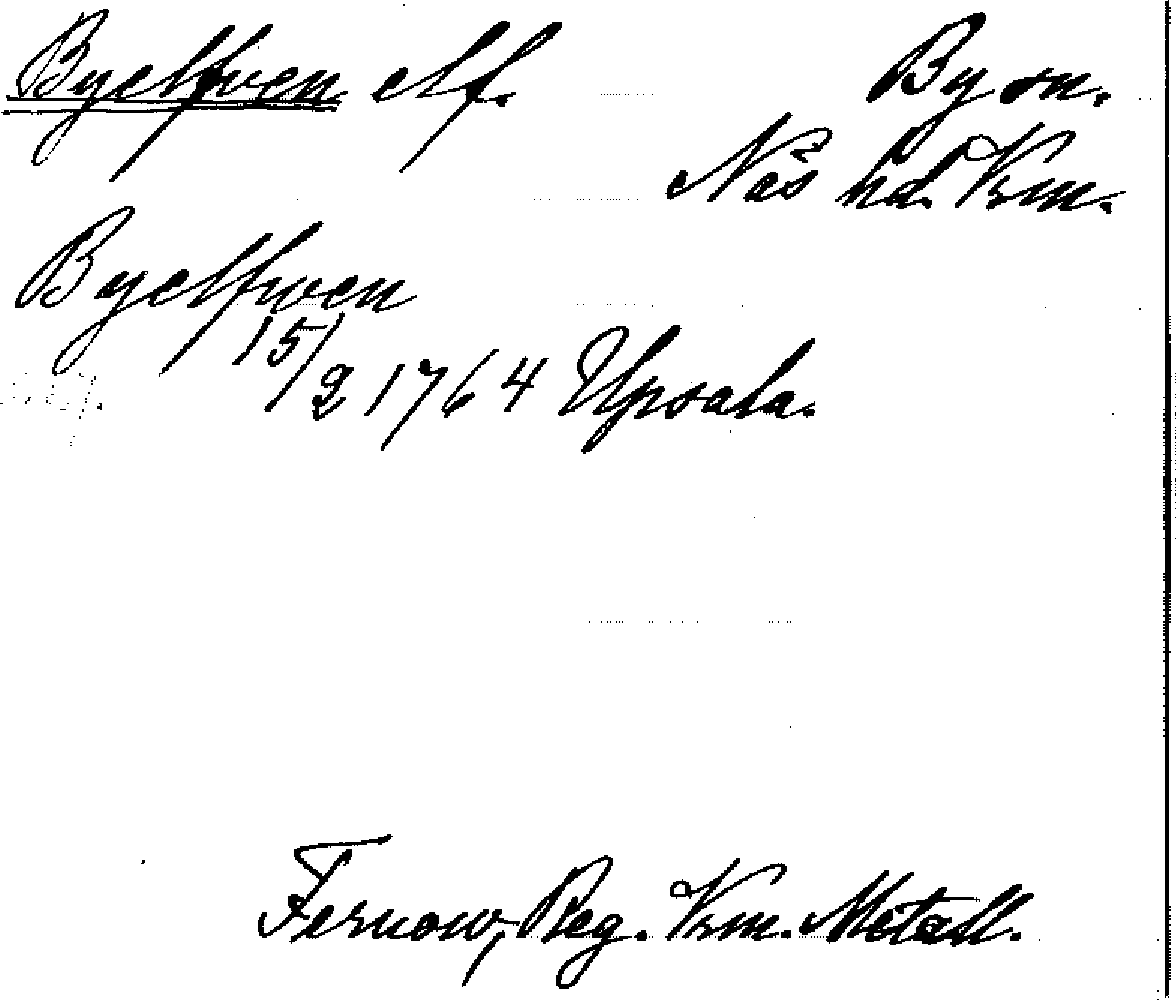 Byelfven elf. By sn.
Näs hd. Vrm.
Byelfwen
15/2 1764 Upsala.
Fernow, Reg. Vrm. Metall.